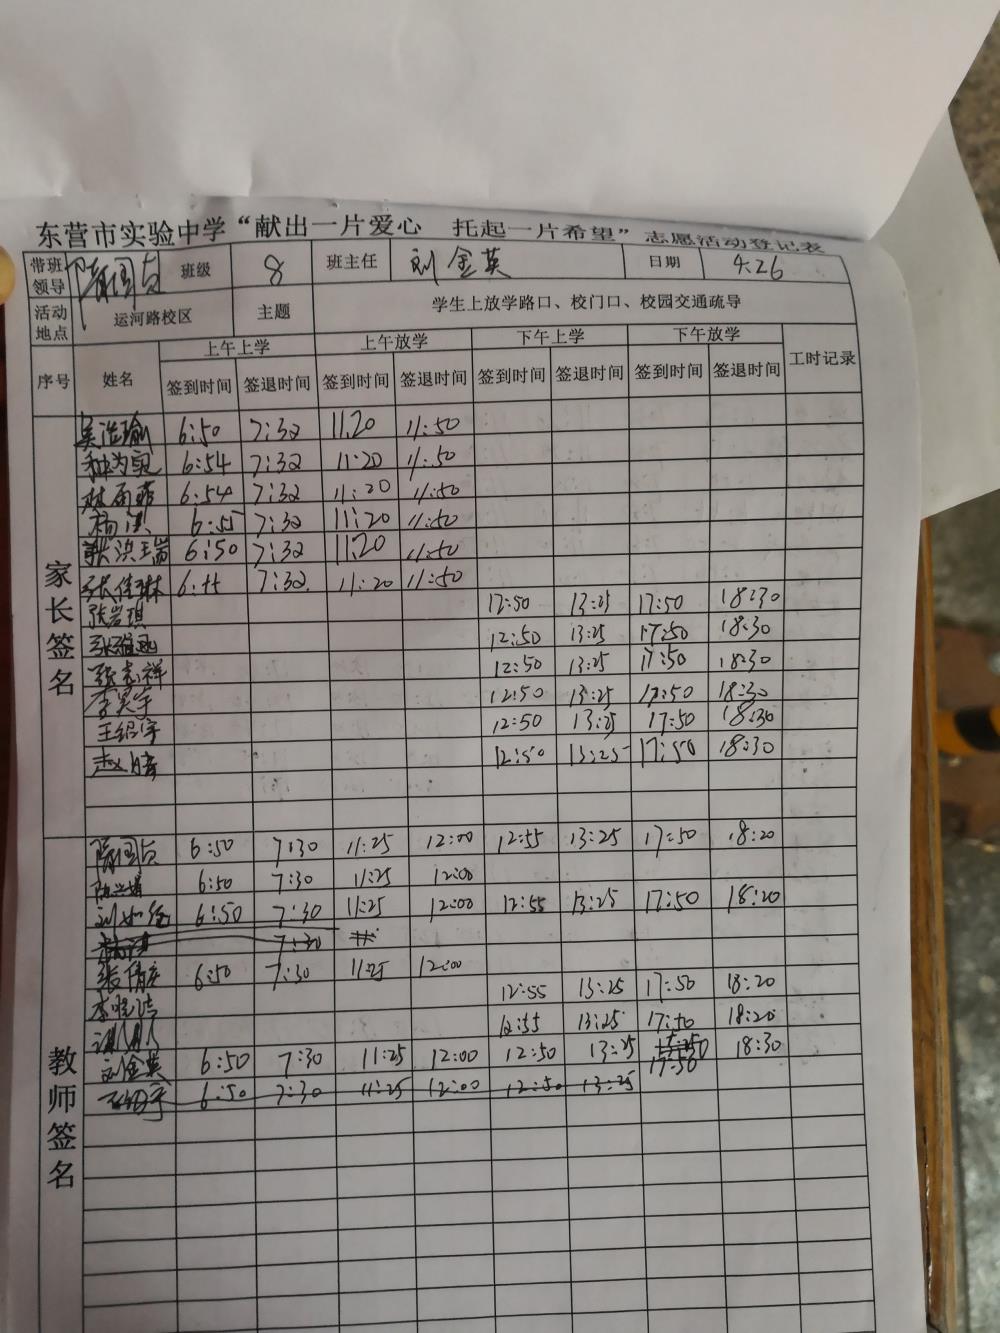 东营市实验中学“献出一片爱心 托起一片希望”志愿活动登记表
带班领导 隋国贞 班级 8 班主任 刘金英 日期 4.26
活动地点 运河路校区 主题 学生上放学路口、校门口、校园交通疏导
序号 姓名 上午上学 上午放学 下午上学 下午放学 工时记录
签到时间 签退时间 签到时间 签退时间 签到时间 签退时间 签到时间 签退时间
家长签名
6:50 7:32 11.20 11:50
6:54 7:32 11:20 11:50
6:54 7:32 11:20 11:50
6:55 7:32 11:20 11:50
6:50 7:32 11.20 11:50
张佳琳 7:32 11:20 11:50
张岩琪 12:50 13:25 17:50 18:30
12:50 13:25 17:50 18:30
张志祥 12:50 13:25 17:50 18:30
李昊宇 12:50 13:25 17:50 18:30
王绍宇 12:50 13:25 17:50 18:30
12:50 13:25 17:50 18:30
教师签名
隋国贞 6:50 7:30 11:25 12:00 12:55 13:25 17:50 18:20
6:50 7:30 11:25 12:00
6:50 7:30 11:25 12:00 12:55 13:25 17:50 18:20
7:30
张倩 6:50 7:30 11:25 12:00
12:55 13:25 17:50 18:20
12:55 13:25 17:50 18:20
刘金英 6:50 7:30 11:25 12:00 12:50 13:25 17:50 18:30
6:50 7:30 11:25 12:00 12:50 13:25